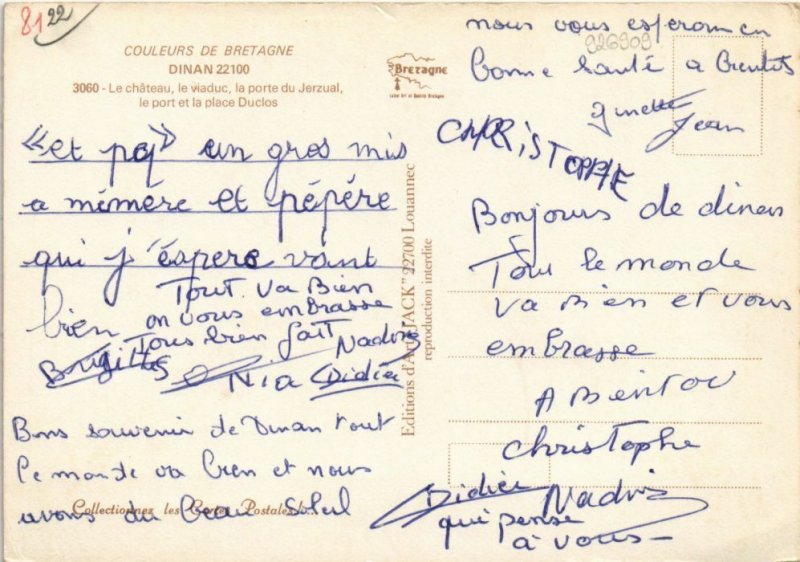 81 22
COULEURS DE BRETAGNE
DINAN 22100
3060 - Le château, le viaduc, la porte du Jerzual,
le port et la place Duclos
Bretagne
«et pq» un gros mis
a mémére et pépére
qui j'éspere vont
bien
Tout va Bien
on vous embrasse
Tous bien fait
Brigitte
Nadine
Nia Didier
Bons souvenir de Dinan tout
le monde va bien et nous
avons du beau soleil
Collectionnez les Cartes Postales !...
Editions d'Art "JACK" 22700 Louannec
reproduction interdite
nous vous esperons en
926909
bonne santé a bientôt
ginette
Jean
CHRISTOPHE
Bonjours de dinan
Tous le monde
va Bien et vous
embrasse
A Bientov
christophe
Didier Nadine
qui pense
à vous